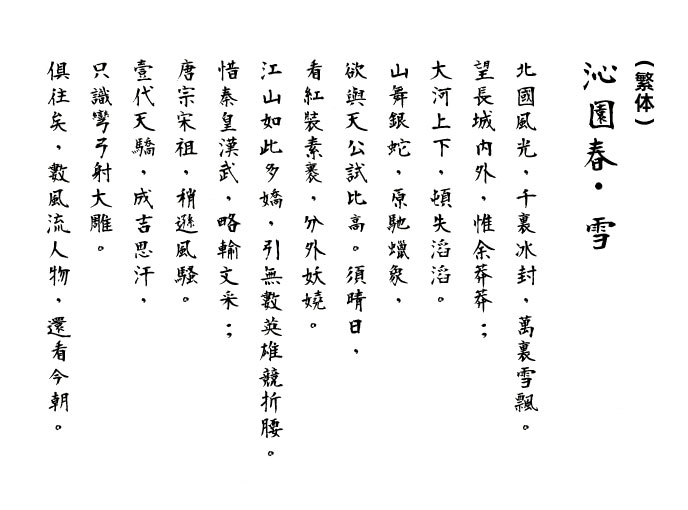 (繁体)
沁園春·雪
北國風光，千裏冰封，萬裏雪飄。
望長城內外，惟余莽莽；
大河上下，頓失滔滔。
山舞銀蛇，原馳蠟象，
欲與天公試比高。須晴日，
看紅裝素裹，分外妖嬈。
江山如此多嬌，引無數英雄競折腰。
惜秦皇漢武，略輸文采；
唐宗宋祖，稍遜風騷。
壹代天驕，成吉思汗，
只識彎弓射大雕。
俱往矣，數風流人物，還看今朝。